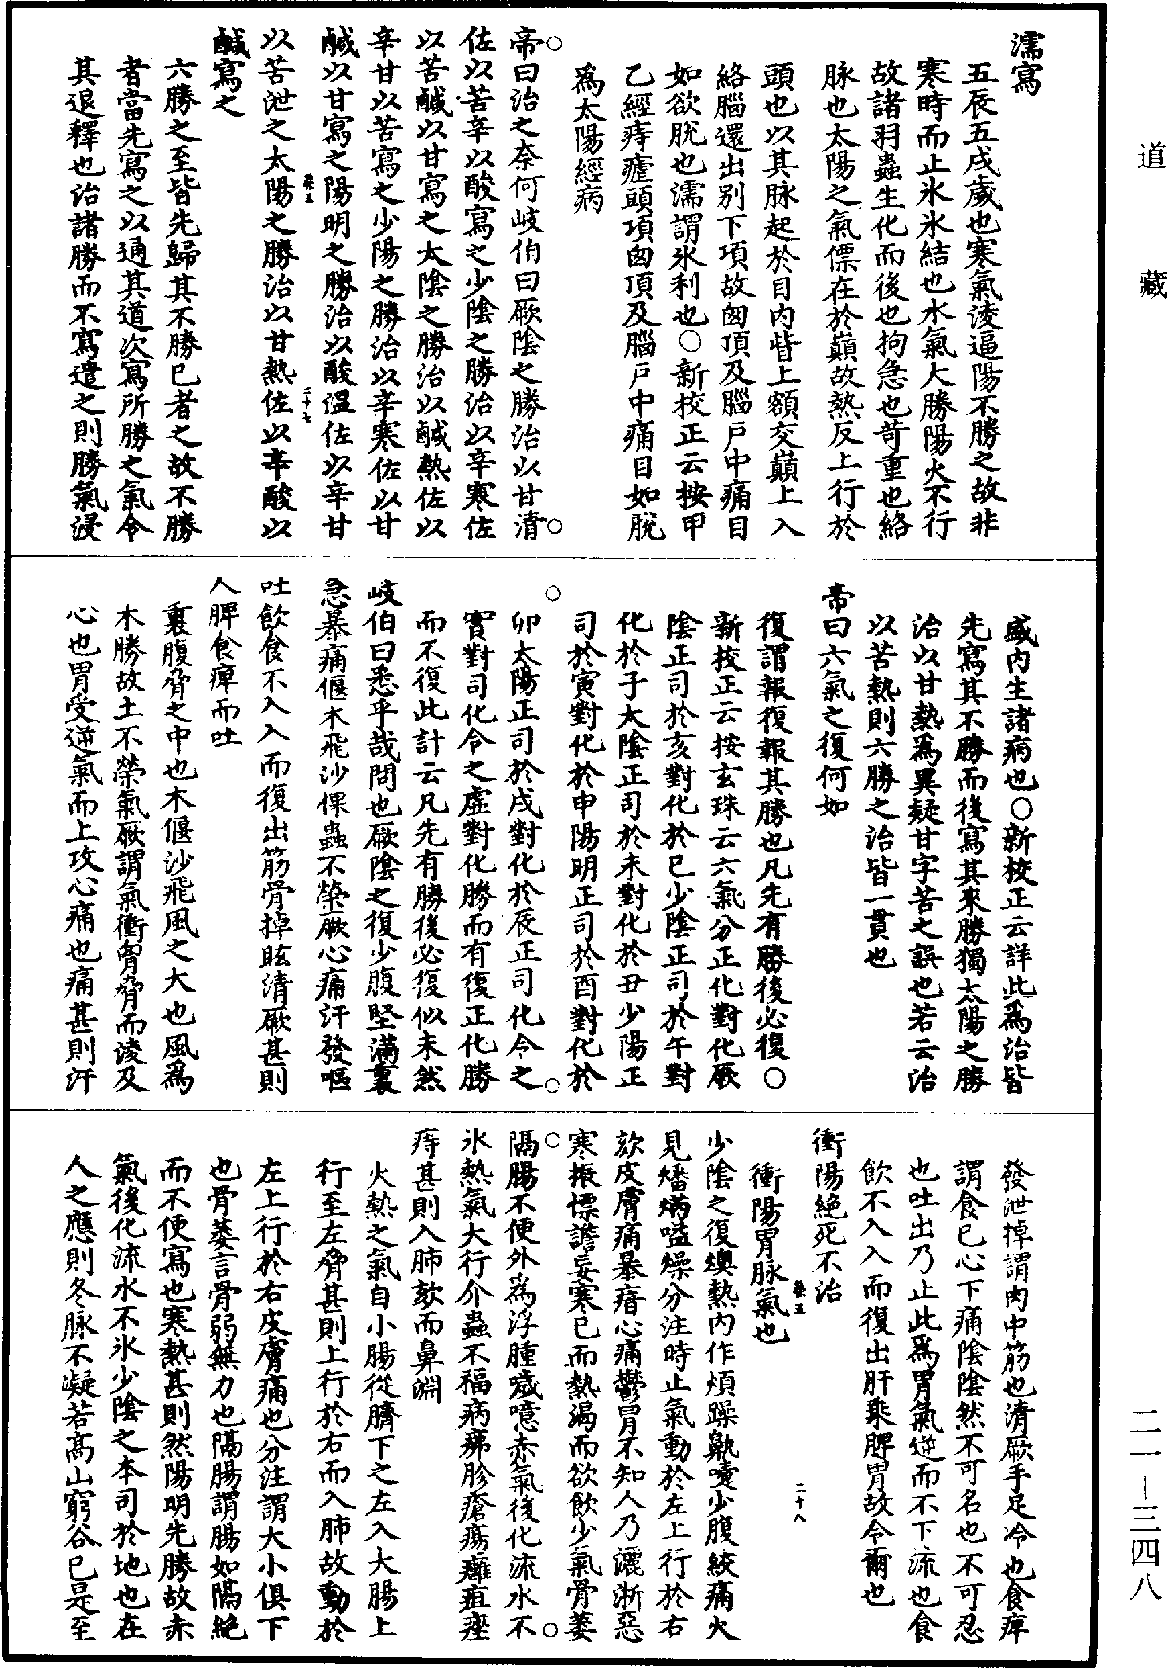 道藏
濡寫
五辰五戌歲也寒氣淩逼陽不勝之故非
寒時而止氷氷結也水氣大勝陽火不行
故諸羽蟲生化而後也拘急也苛重也絡
脉也太陽之氣僄在於巔故熱反上行於
頭也以其脉起於目內眥上額交巔上入
絡腦還出别下項故囪頂及腦戶中痛目
如欲脫也濡謂氷利也○新校正云按甲
乙經痔瘧頭項囪頂及腦戶中痛目如脫
爲太陽經病
帝曰治之奈何岐伯曰厥陰之勝治以甘清
佐以苦辛以酸寫之少陰之勝治以辛寒佐
以苦鹹以甘寫之太陰之勝治以鹹熱佐以
辛甘以苦寫之少陽之勝治以辛寒佐以甘
鹹以甘寫之陽明之勝治以酸溫佐以辛甘
卷五
二十七
以苦泄之太陽之勝治以甘熱佐以辛酸以
鹹寫之
六勝之至皆先歸其不勝巳者之故不勝
者當先寫之以通其道次寫所勝之氣令
其退釋也治諸勝而不寫遣之則勝氣浸
盛內生諸病也○新校正云詳此爲治皆
先寫其不勝而後寫其來勝獨太陽之勝
治以甘熱爲異疑甘字苦之誤也若云治
以苦熱則六勝之治皆一貫也
帝曰六氣之復何如
復謂報復報其勝也凡先有勝後必復○
新挍正云按玄珠云六氣分正化對化厥
陰正司於亥對化於巳少陰正司於午對
化於子太陰正司於未對化於丑少陽正
司於寅對化於申陽明正司於酉對化於
卯太陽正司於戌對化於辰正司化令之
實對司化令之虛對化勝而有復正化勝
而不復此計云凡先有勝後必復似未然
岐伯曰悉乎哉問也厥陰之復少腹堅滿裏
急暴痛偃木飛沙倮蟲不榮厥心痛汗發嘔
吐飲食不入入而復出筋骨掉眩清厥甚則
入脾食痺而吐
裏腹脅之中也木偃沙飛風之大也風爲
木勝故土不榮氣厥謂氣衝胷脅而淩及
心也胃受逆氣而上攻心痛也痛甚則汗
發泄掉謂肉中筋也清厥手足冷也食痺
謂食巳心下痛陰陰然不可名也不可忍
也吐出乃止此爲胃氣逆而不下流也食
飲不入入而復出肝乘脾胃故令爾也
衝陽絕死不治
衝陽胃脉氣也
卷五
二十八
少陰之復燠熱內作煩躁鼽嚏少腹絞痛火
見燔焫嗌燥分注時止氣動於左上行於右
欬皮膚痛暴瘖心痛鬱冒不知人乃灑淅惡
寒振慄譫妄寒巳而熱渴而欲飲少氣骨萎
隔腸不便外爲浮腫噦噫赤氣後化流水不
氷熱氣大行介蟲不福病痱胗瘡瘍癰疽痤
痔甚則入肺欬而鼻淵
火熱之氣自小腸從臍下之左入大腸上
行至左脅甚則上行於右而入肺故動於
左上行於右皮膚痛也分注謂大小俱下
也骨萎言骨弱無力也隔腸謂腸如隔絕
而不便寫也寒熱甚則然陽明先勝故赤
氣後化流水不氷少陰之本司於地也在
人之應則冬脉不凝若高山窮谷巳是至
二一—三四八